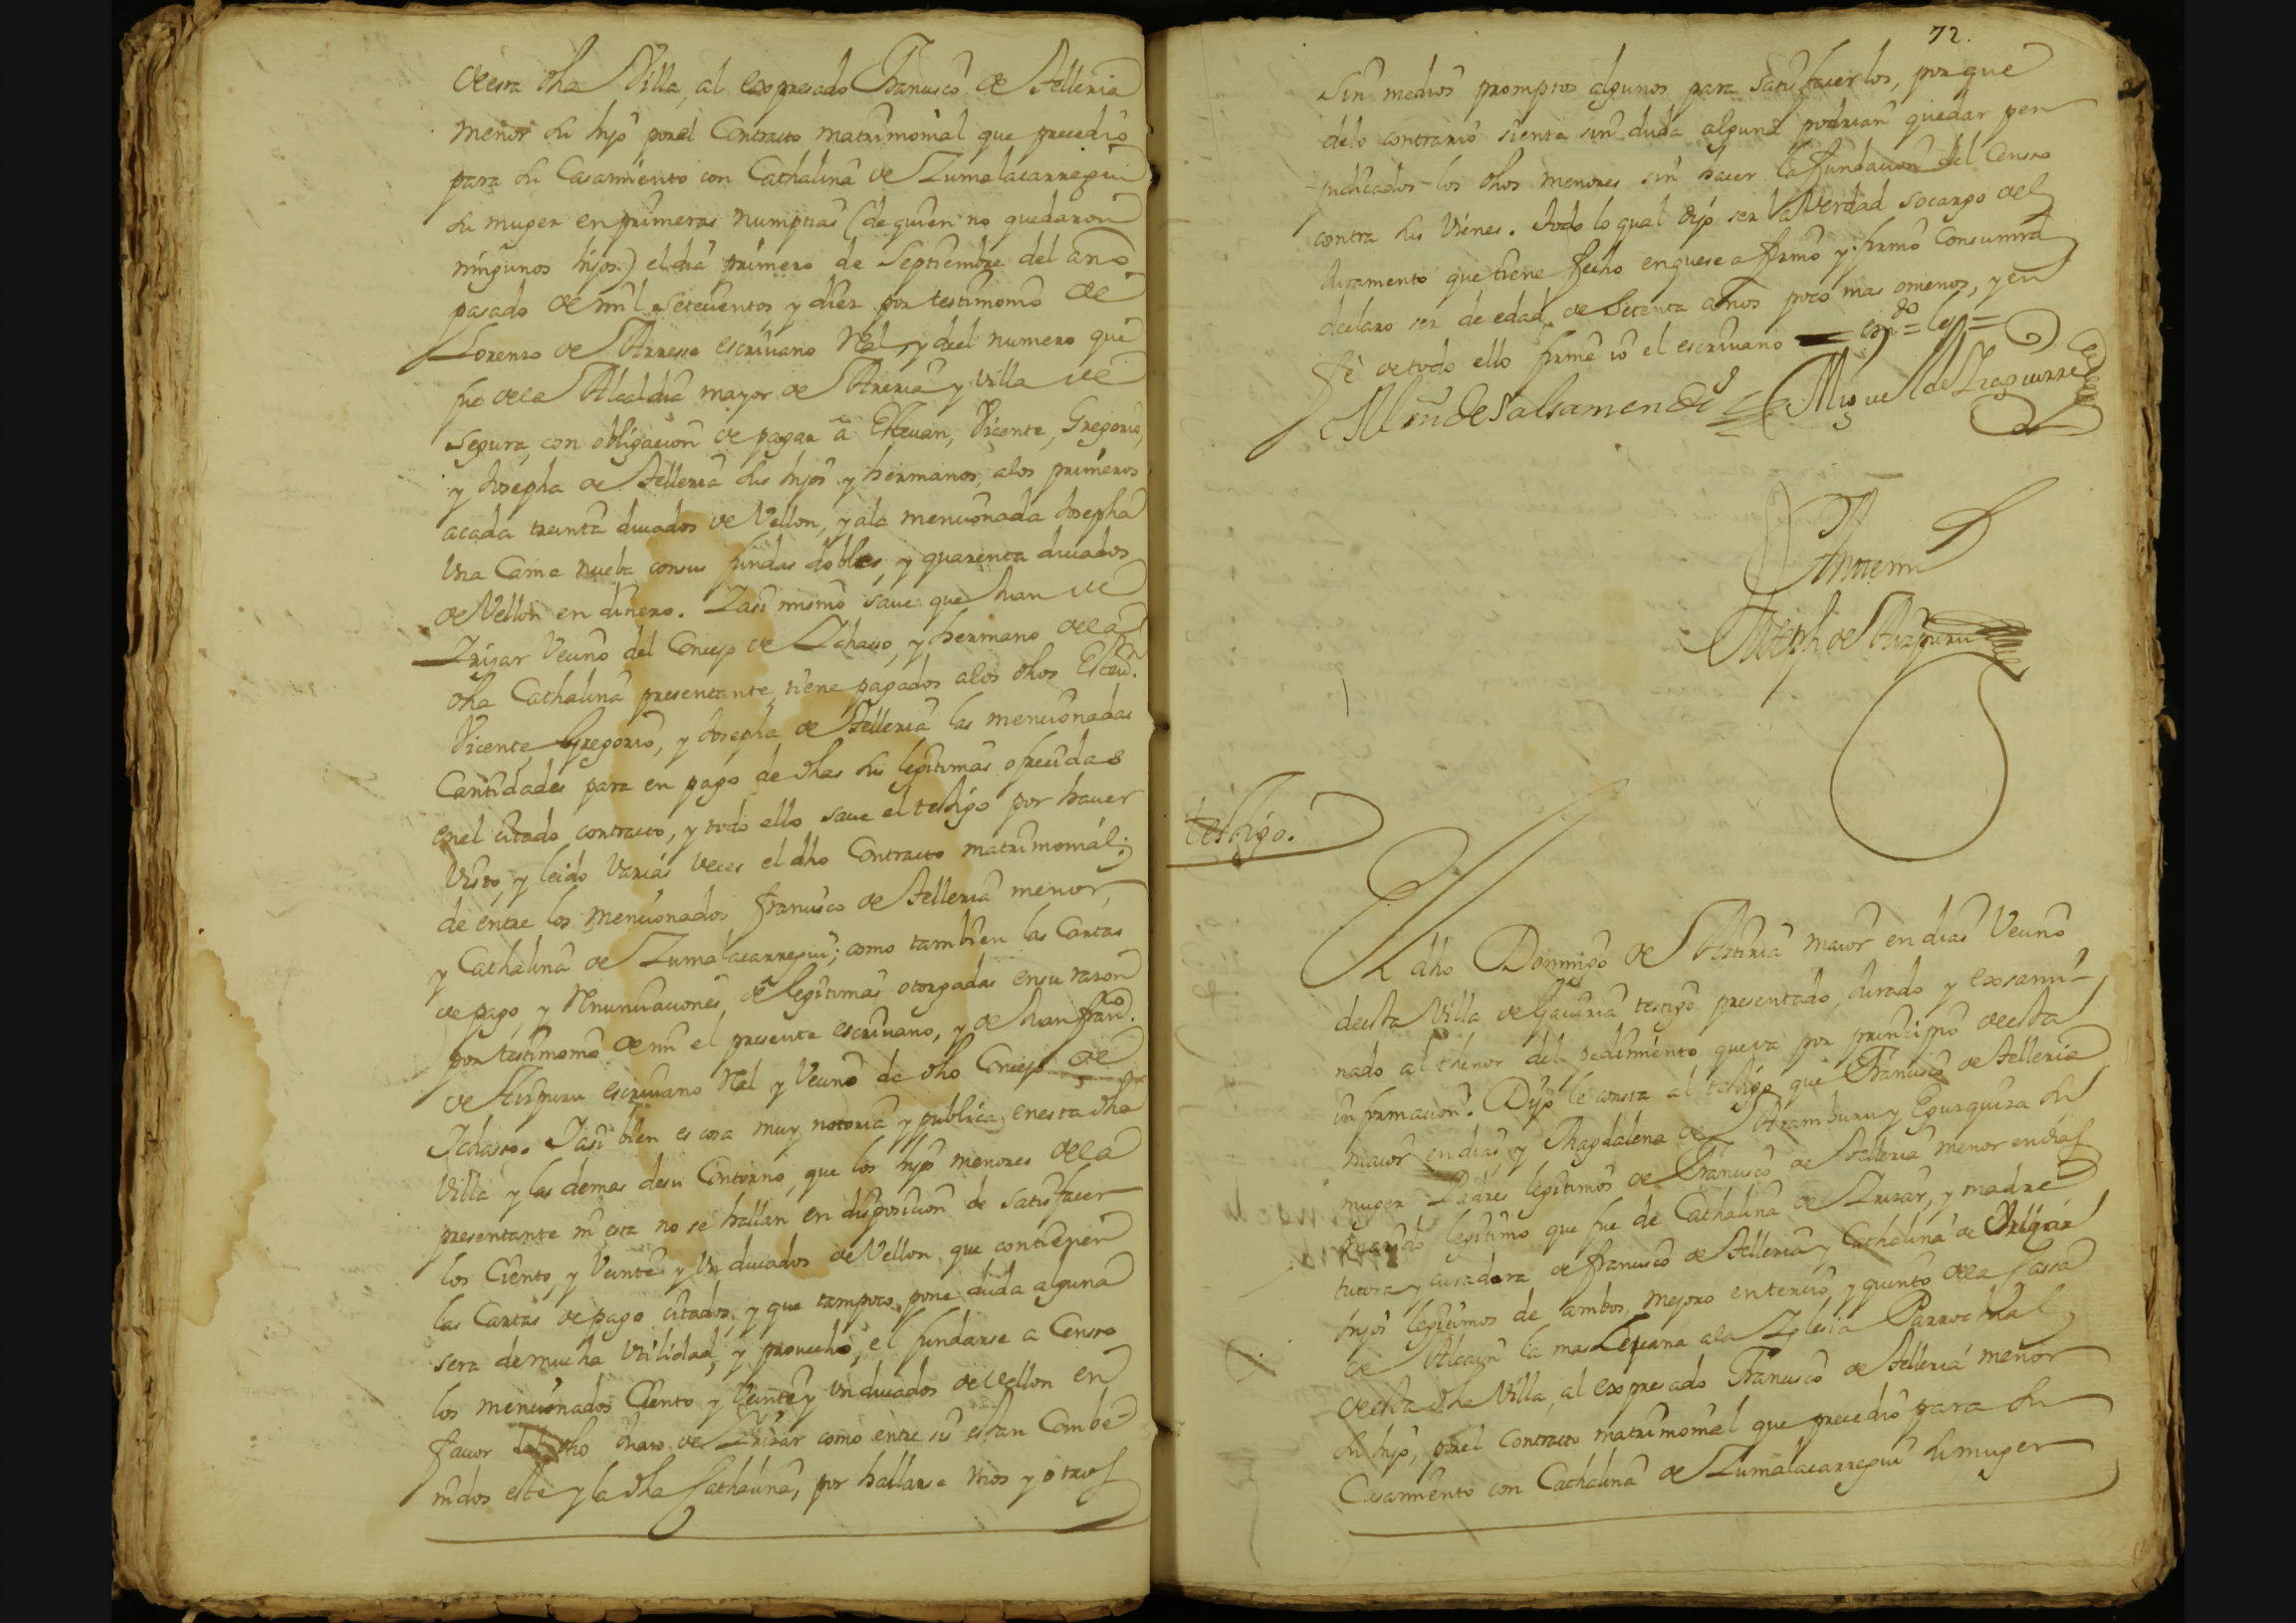 de esta dha Villa, al expresado Franᵘsco de Telleria
menor su hijo por el Contracto matrimonial que precedio
para su Casamiento con Cathalina de Zumalacarregui
su muger en primeras numptias (de quien no quedaron
ningunos hijos) el dia primero de Septiembre del año
pasado de mil setecientos y diez por testimonio de
Lorenzo de Arresse escriuano Rl y del numero que
fue dela Alcaldia mayor de Areria y Villa de
Segura, con obligacion de pagar â Esteuan, Vicente, Gregorio,
y Josepha de Telleria sus hijos y hermanos, alos primeros
acada treinta ducados de Vellon, y ala mencionada Josepha
Vna Cama nueba consus fundas dobles, y quarenta ducados
de Vellon en dinero. Y asi mismo saue que Juan de
Irizar Vecino del Concejo de Ichasso, y hermano dela
dha Cathalina presentante, tiene pagados alos dhos Esteun.
Vicente Gregorio, y Josepha de Telleria las mencionadas
Cantidades para en pago de dhas sus legitimas ofrecidas
enel citado contracto, y todo ello saue el testigo por hauer
Visto, y leido Varias Veces el dho Contracto matrimonial
de entre los mencionados francisco de Telleria menor,
y Cathalina de Zumalacarregui; como tambien las Cartas
de pago, y Renunciaciones de legitimas otorgadas en su razon
por testimonio de mi el presente escriuano, y de Juan franco.
de Aizpuru escriuano Rl y Vecino de dho Concejo de
Ichasso. Y asi bien es cosa muy notoria y publica, enesta dha
Villa y las demas desu Contorno, que los hijos menores dela
presentante ni esta no se hallan en disposicion de satisfacer
los Ciento, y Veinte y Vn ducados de Vellon que contienen
las Cartas de pago citados, y que tampoco pone duda alguna
sera de mucha Vtilidad, y prouecho, el fundarse a Censo
los mencionados Ciento y Veinte y Vn ducados de Vellon en
fauor del dho Juan de Irizar como entre si estan Combe
nidos este y la dha Cathalina, por hallarse Vnos y otros
72.
Sin medios promptos algunos para satisfacerlos, porque
delo contrario sienta sin duda alguna podrian quedar per
judicados los dhos menores sin hacer la fundacion del Censo
contra sus Vienes. todo lo qual dijo ser la Verdad socargo del
Juramento que tiene fecho enquese afirmo y firmo Consumrd
declaro ser de edad de Setenta años poco mas omenos, y en
fè de todo ello firmè io el escriuano
Mrn de Salsamendi
Miguel de Izaguirre
Antemi
Joseph de Aizpuru
testigo.
El dho Domingo de Astiria maior en dias Vecino
de esta Villa de Gauiria testigo presentado, Jurado y exsami-
nado al thenor del pedimiento queva por principio de esta
informacion. Dijo le consta al testigo que Francisco de Telleria
maior en dias, y Magdalena de Aramburu y Egurquiza su
muger Padres legitimos de Francisco de Telleria menor endias
marido legitimo que fue de Cathalina de Irizar, y madre
tutora y curadora de francisco de Telleria y Cathalina de
hijos legitimos de ambos, mejoro en tercio y quinto dela Cassa
de Alcain la mas Lejana ala Iglesia Parrochial
de esta dha Villa, al expresado Francisco de Telleria menor
su hijo, porel Contracto matrimonial que precedio para su
Casamiento con Cathalina de Zumalacarregui su muger